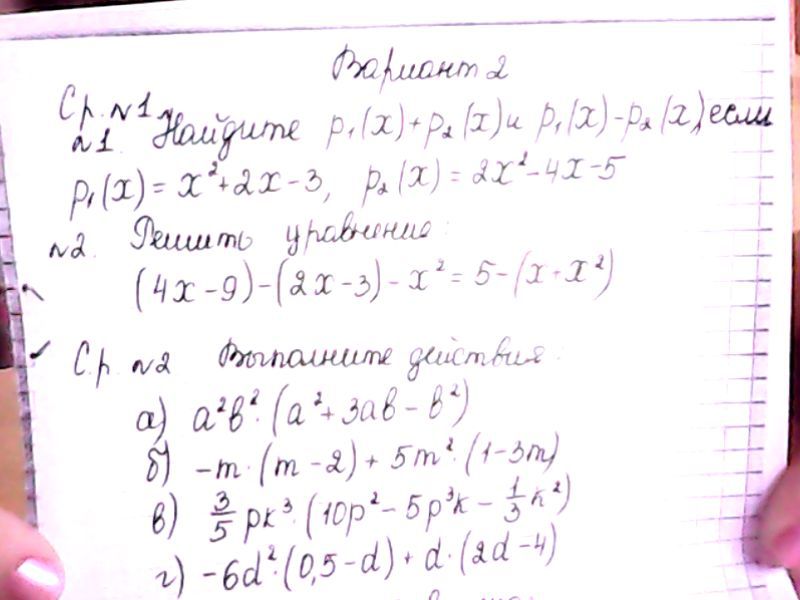 Вариант 2
Ср. №1
№1. Найдите p₁(x)+p₂(x) и p₁(x)-p₂(x), если
p₁(x) = x²+2x-3, p₂(x) = 2x²-4x-5
№2. Решить уравнение:
(4x-9)-(2x-3)-x² = 5-(x+x²)
Ср. №2 Выполните действия:
а) a²b²·(a²+3ab-b²)
б) -m·(m-2)+5m²·(1-3m)
в) 3/5 pk³·(10p²-5p³k-1/3k²)
г) -6d²·(0,5-d)+d·(2d-4)